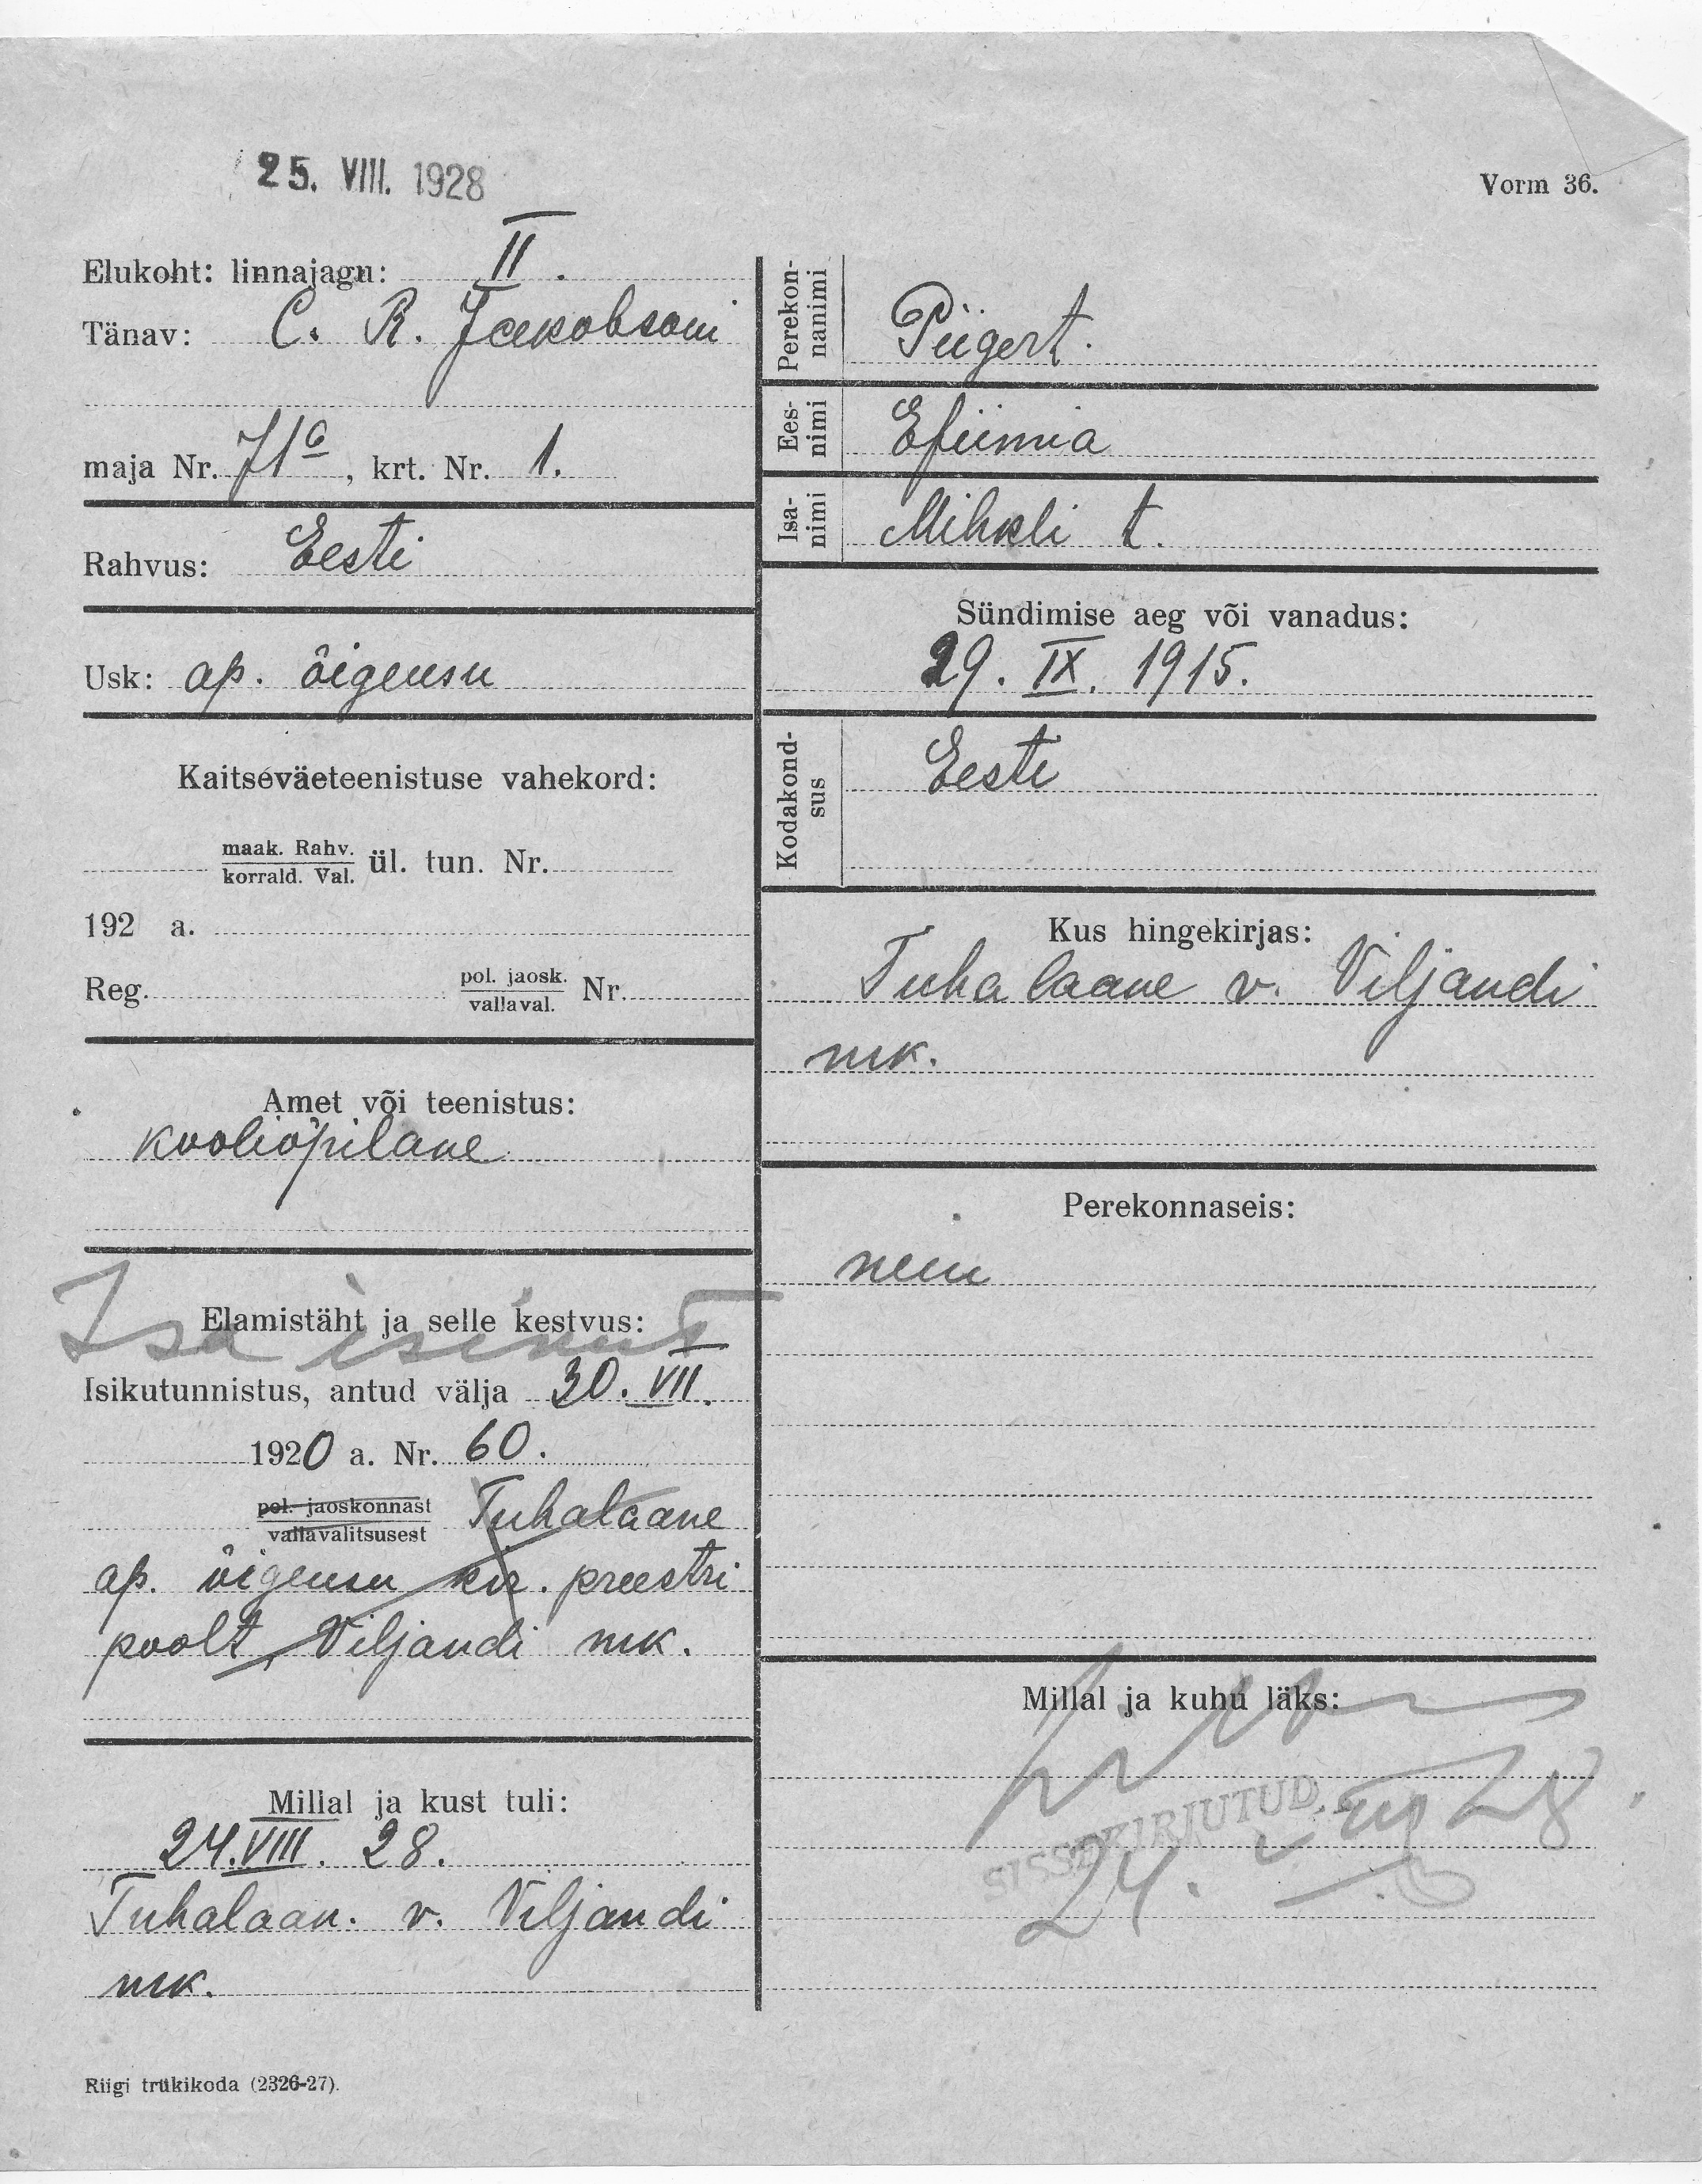 25. VIII. 1928
Vorm 36.
Elukoht: linnajagu: II.
Tänav: C. R. Jakobsoni
maja Nr. 71a, krt. Nr. 1.
Rahvus: Eesti
Usk: ap. õigeusu
Kaitseväeteenistuse vahekord:
maak. Rahv.
korrald. Val. ül. tun. Nr.
192 a.
Reg. pol. jaosk.
vallaval. Nr.
Amet või teenistus:
kooliõpilane
Elamistäht ja selle kestvus:
Isa isikut
Isikutunnistus, antud välja 30. VII.
1920 a. Nr. 60.
pol. jaoskonnast
vallavalitsusest Tuhalaane
ap. õigeusu kir. preestri
poolt, Viljandi mk.
Millal ja kust tuli:
24. VIII. 28.
Tuhalaan. v. Viljandi
mk.
Riigi trükikoda (2326-27).
Perekon-
nanimi Piigert.
Ees-
nimi Efiimia
Isa-
nimi Mihkli t.
Sündimise aeg või vanadus:
29. IX. 1915.
Kodakond-
sus Eesti
Kus hingekirjas:
Tuhalaane v. Viljandi
mk.
Perekonnaseis:
neiu
Millal ja kuhu läks:
SISSEKIRJUTUD
24. VIII 28.